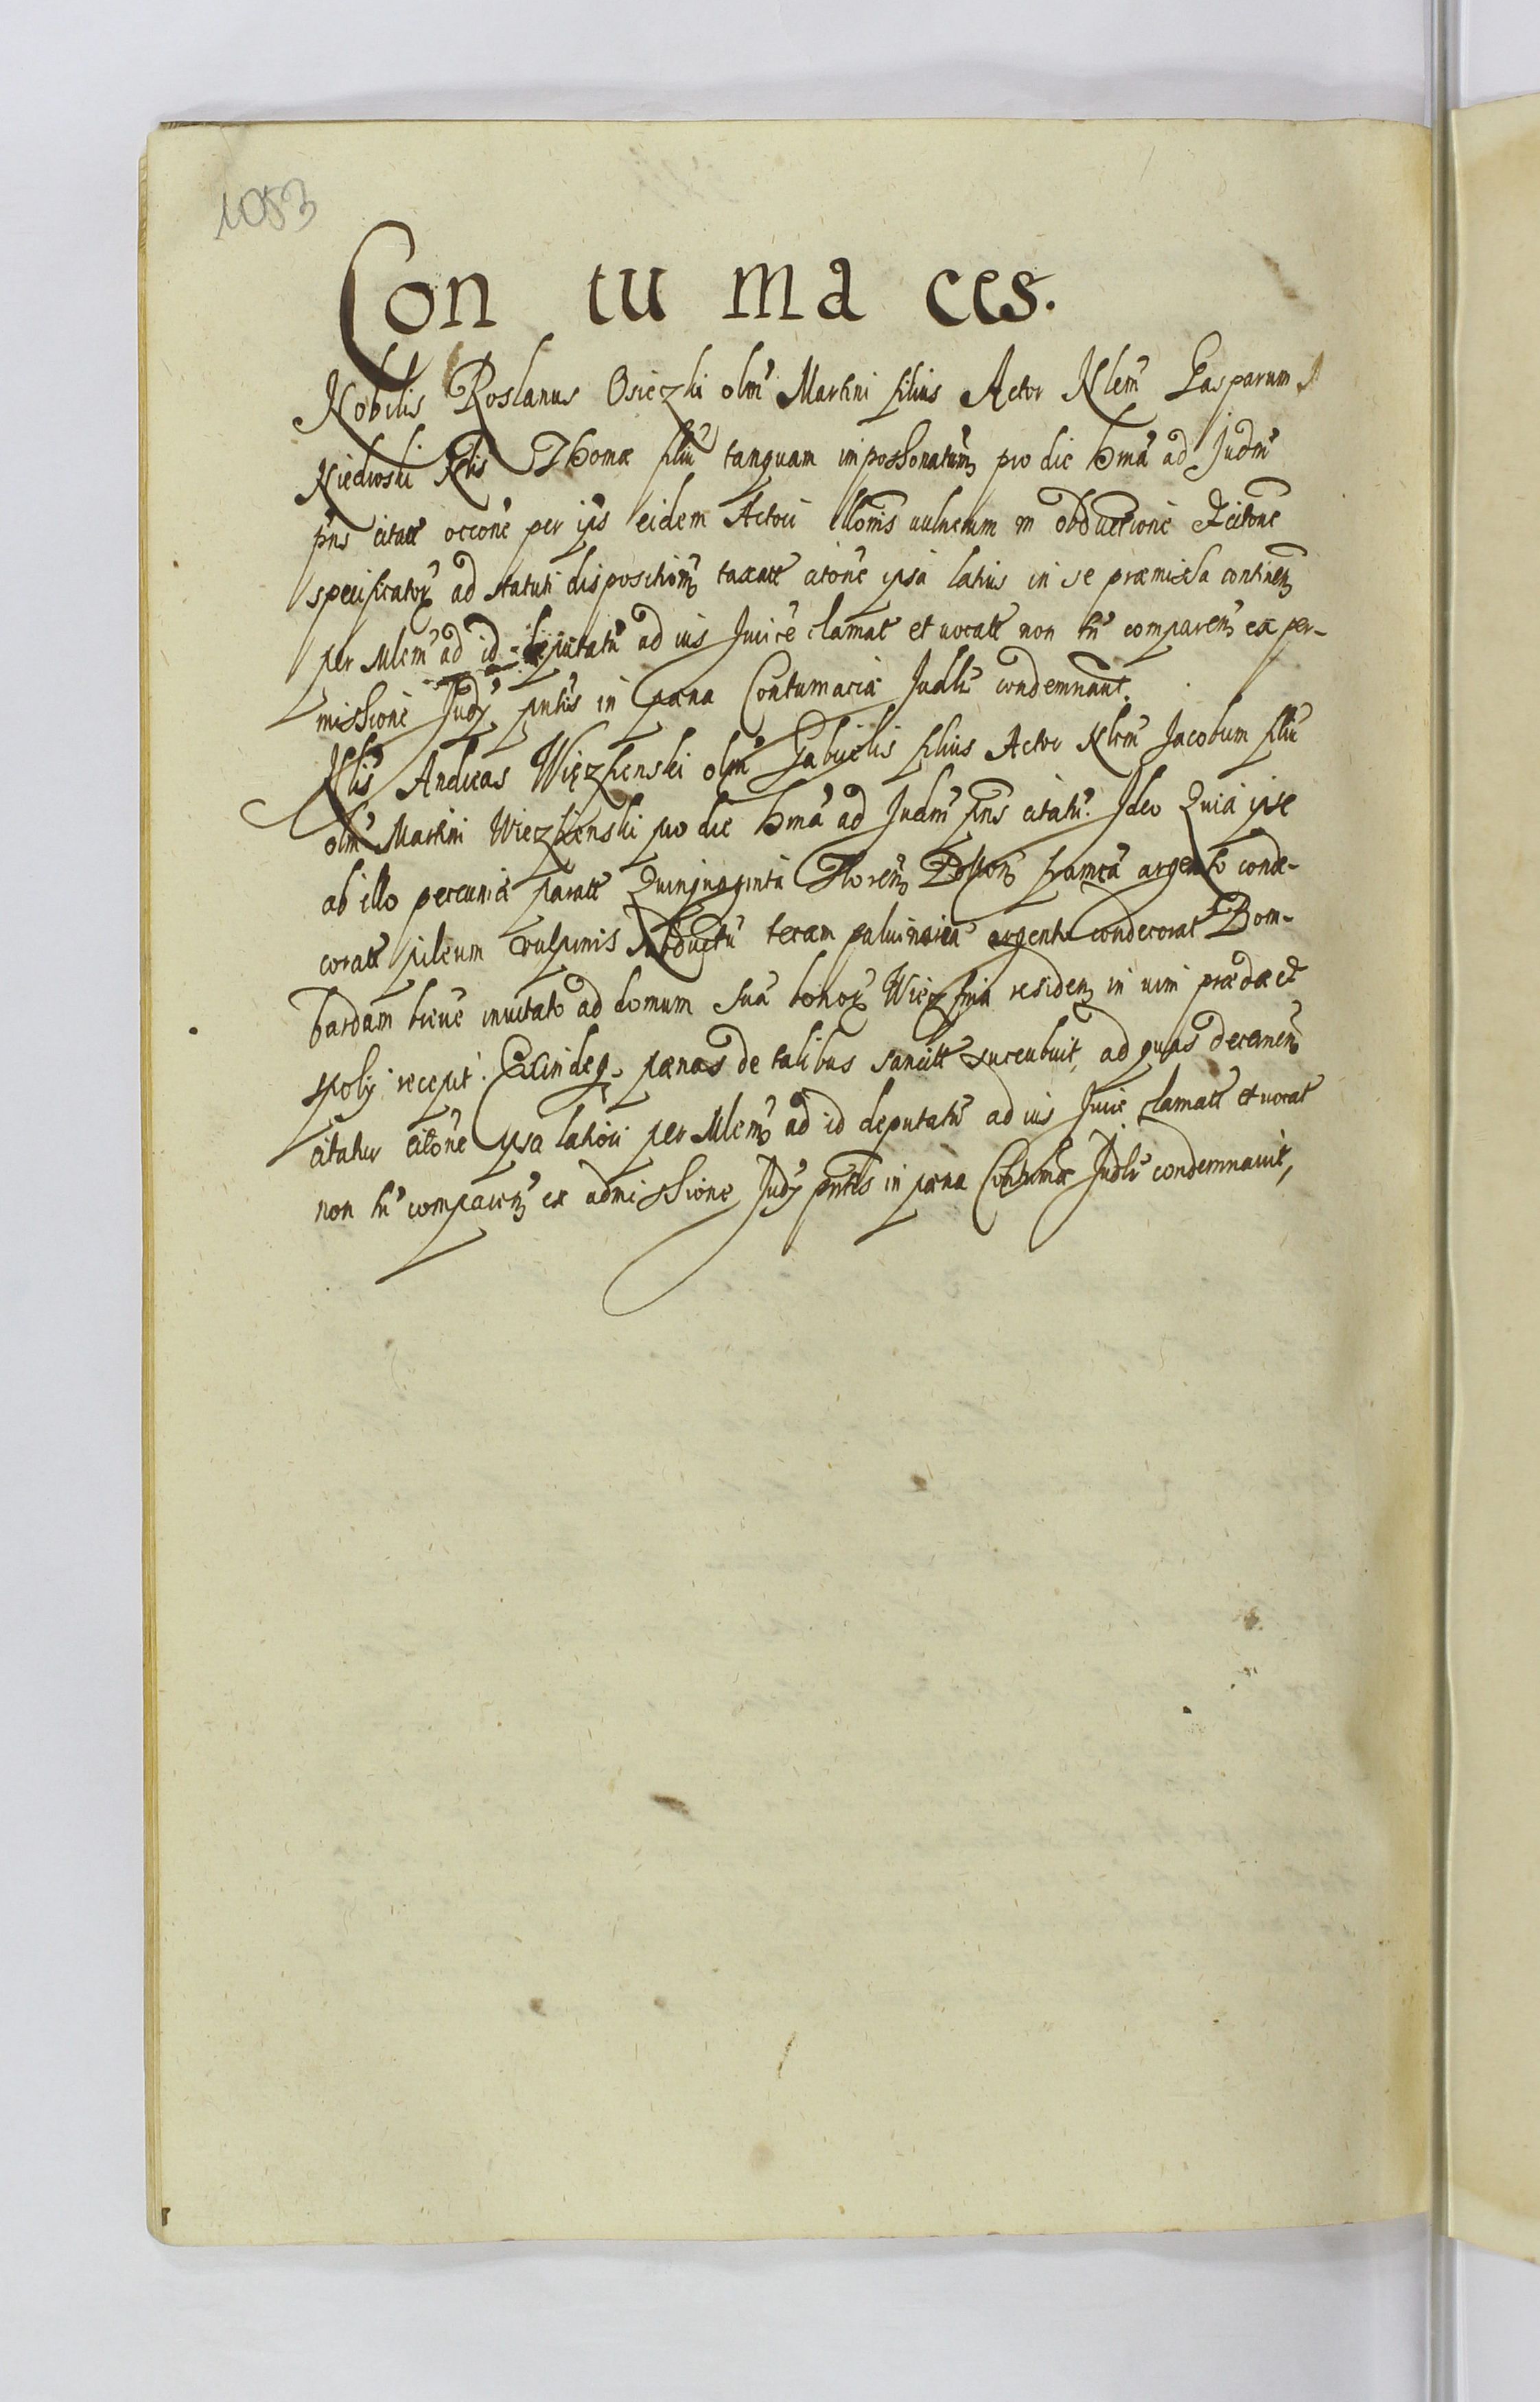 1053
Con tu ma ces.
Nobilis Roslanus Osięzki olm Martini filius Actor Nlem Gasparum
Niedroski Nlis Thomæ filiu tanquam impossonatum pro die hma ad Judm
pns citatt occone per ips eidem Actori vulnerum in obductione
specificator ad statuti disposition taxatt citone ipsa latius in se præmissa continen
per Mlem ad id deputatu ad ius Juice clamat et vocatt non tn comparen ex per-
missione Judy pntis in pæna Contumacia Judli condemnant.
Nlis Andreas Więzkenski olm Gabrielis filius Actor Nlem Jacobum filiu
olm Martini Więzkenski pro die hma ad Judm pns citatt. Ideo Quia ipse
ab illo peccunia paratt Quinquaginta Floren Polton frameā argento conde-
coratt pileum vulpinis subductu argento condecorat Bom-
bardam breve invitato ad domum sua bonor residen in vim prædæ et
spoly recepit. Exindeq pænas de talibus sancitt succubuit, ad quas decernen
citatur citone ipsa latiori per Mlem ad id deputatu ad ius Juice clamatt et vocat
non tn comparen ex admissione Judy pntis in pæna Contumæ Judli condemnavit,